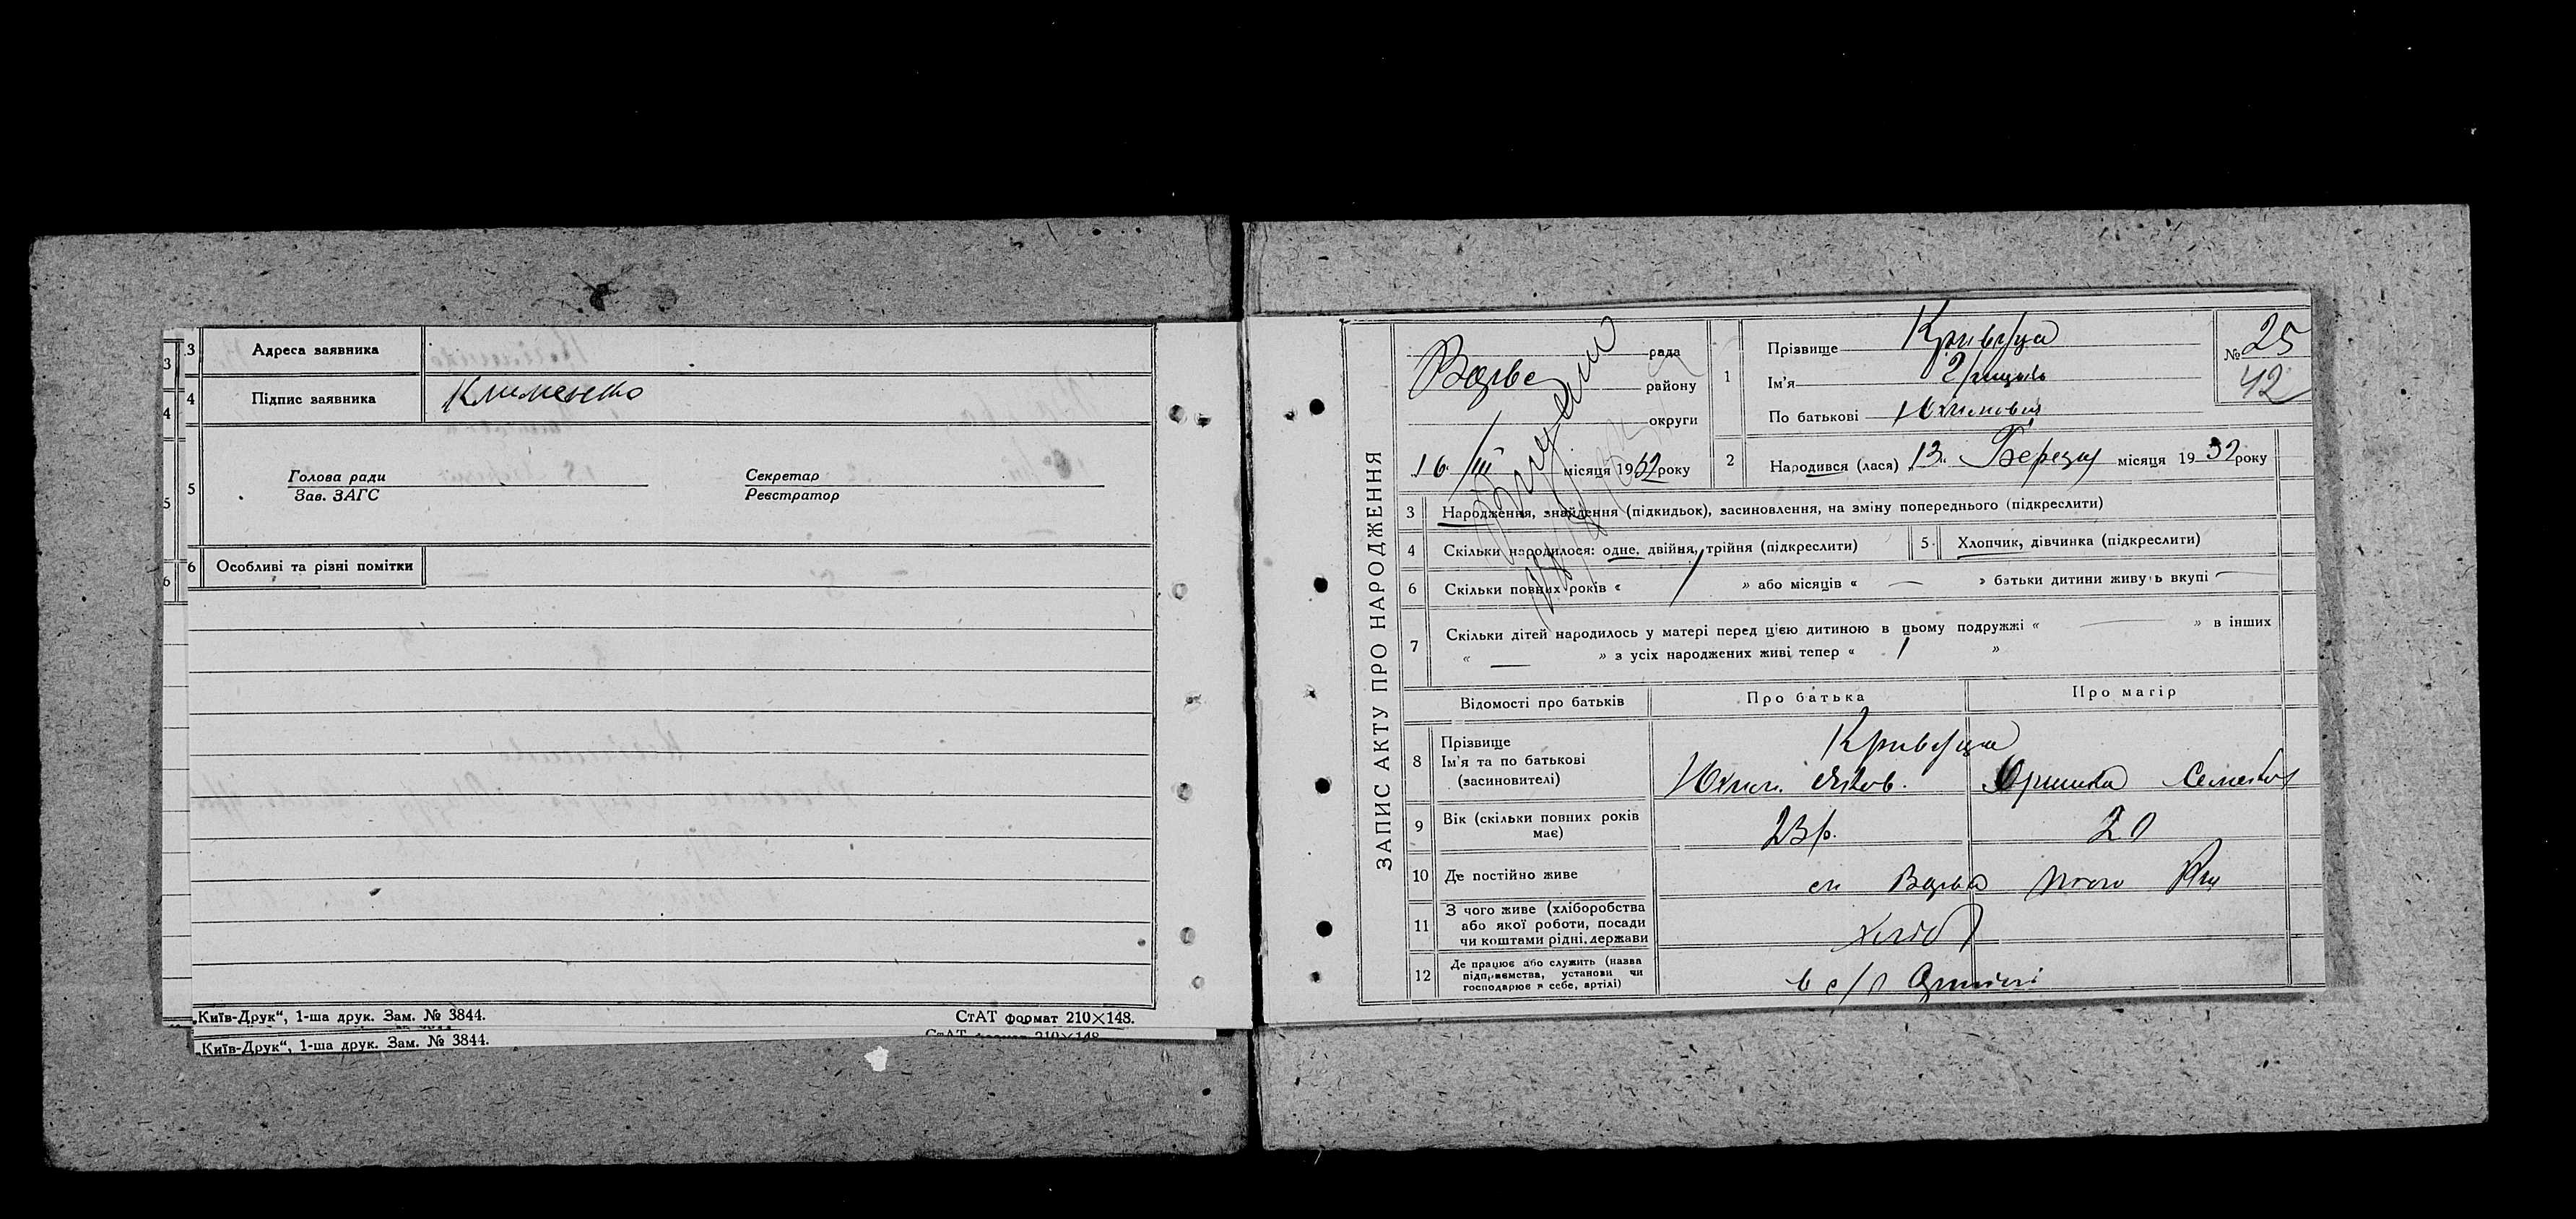 3 Адреса заявника
4 Підпис заявника Клименко
5 Голова ради Секретар
Зав. ЗАГС Реєстратор
6 Особливі та різні помітки
„Київ-Друк“, 1-ша друк. Зам. № 3844. СтАТ формат 210×148.
„Київ-Друк“, 1-ша друк. Зам. № 3844. СтАТ формат 210×148
ЗАПИС АКТУ ПРО НАРОДЖЕННЯ
рада
району
округи
16 III місяця 1932 року
1 Прізвище Кривуца
Ім'я
По батькові Юхимович
№ 25
42
2 Народився (лася) 13. Березня місяця 1932 року
3 Народження, знайдення (підкидьок), засиновлення, на зміну попереднього (підкреслити)
4 Скільки народилося: одне, двійня, трійня (підкреслити) 5 Хлопчик, дівчинка (підкреслити)
6 Скільки повних років « 1 » або місяців « — » батьки дитини живуть вкупі —
7 Скільки дітей народилось у матері перед цією дитиною в цьому подружжі « — » в інших
« — » з усіх народжених живі тепер « 1 »
Відомості про батьків Про батька Про матір
8 Прізвище
Ім'я та по батькові
(засиновителі)
Кривуца
Юхим Яков. Оришка Семенов
9 Вік (скільки повних років має) 23 р. 20
10 Де постійно живе Варва
11 З чого живе (хліборобства
або якої роботи, посади
чи коштами рідні, держави
хліб
12 Де працює або служить (назва
підприємства, установи чи
господарює в себе, артілі)
в с/г Артілі